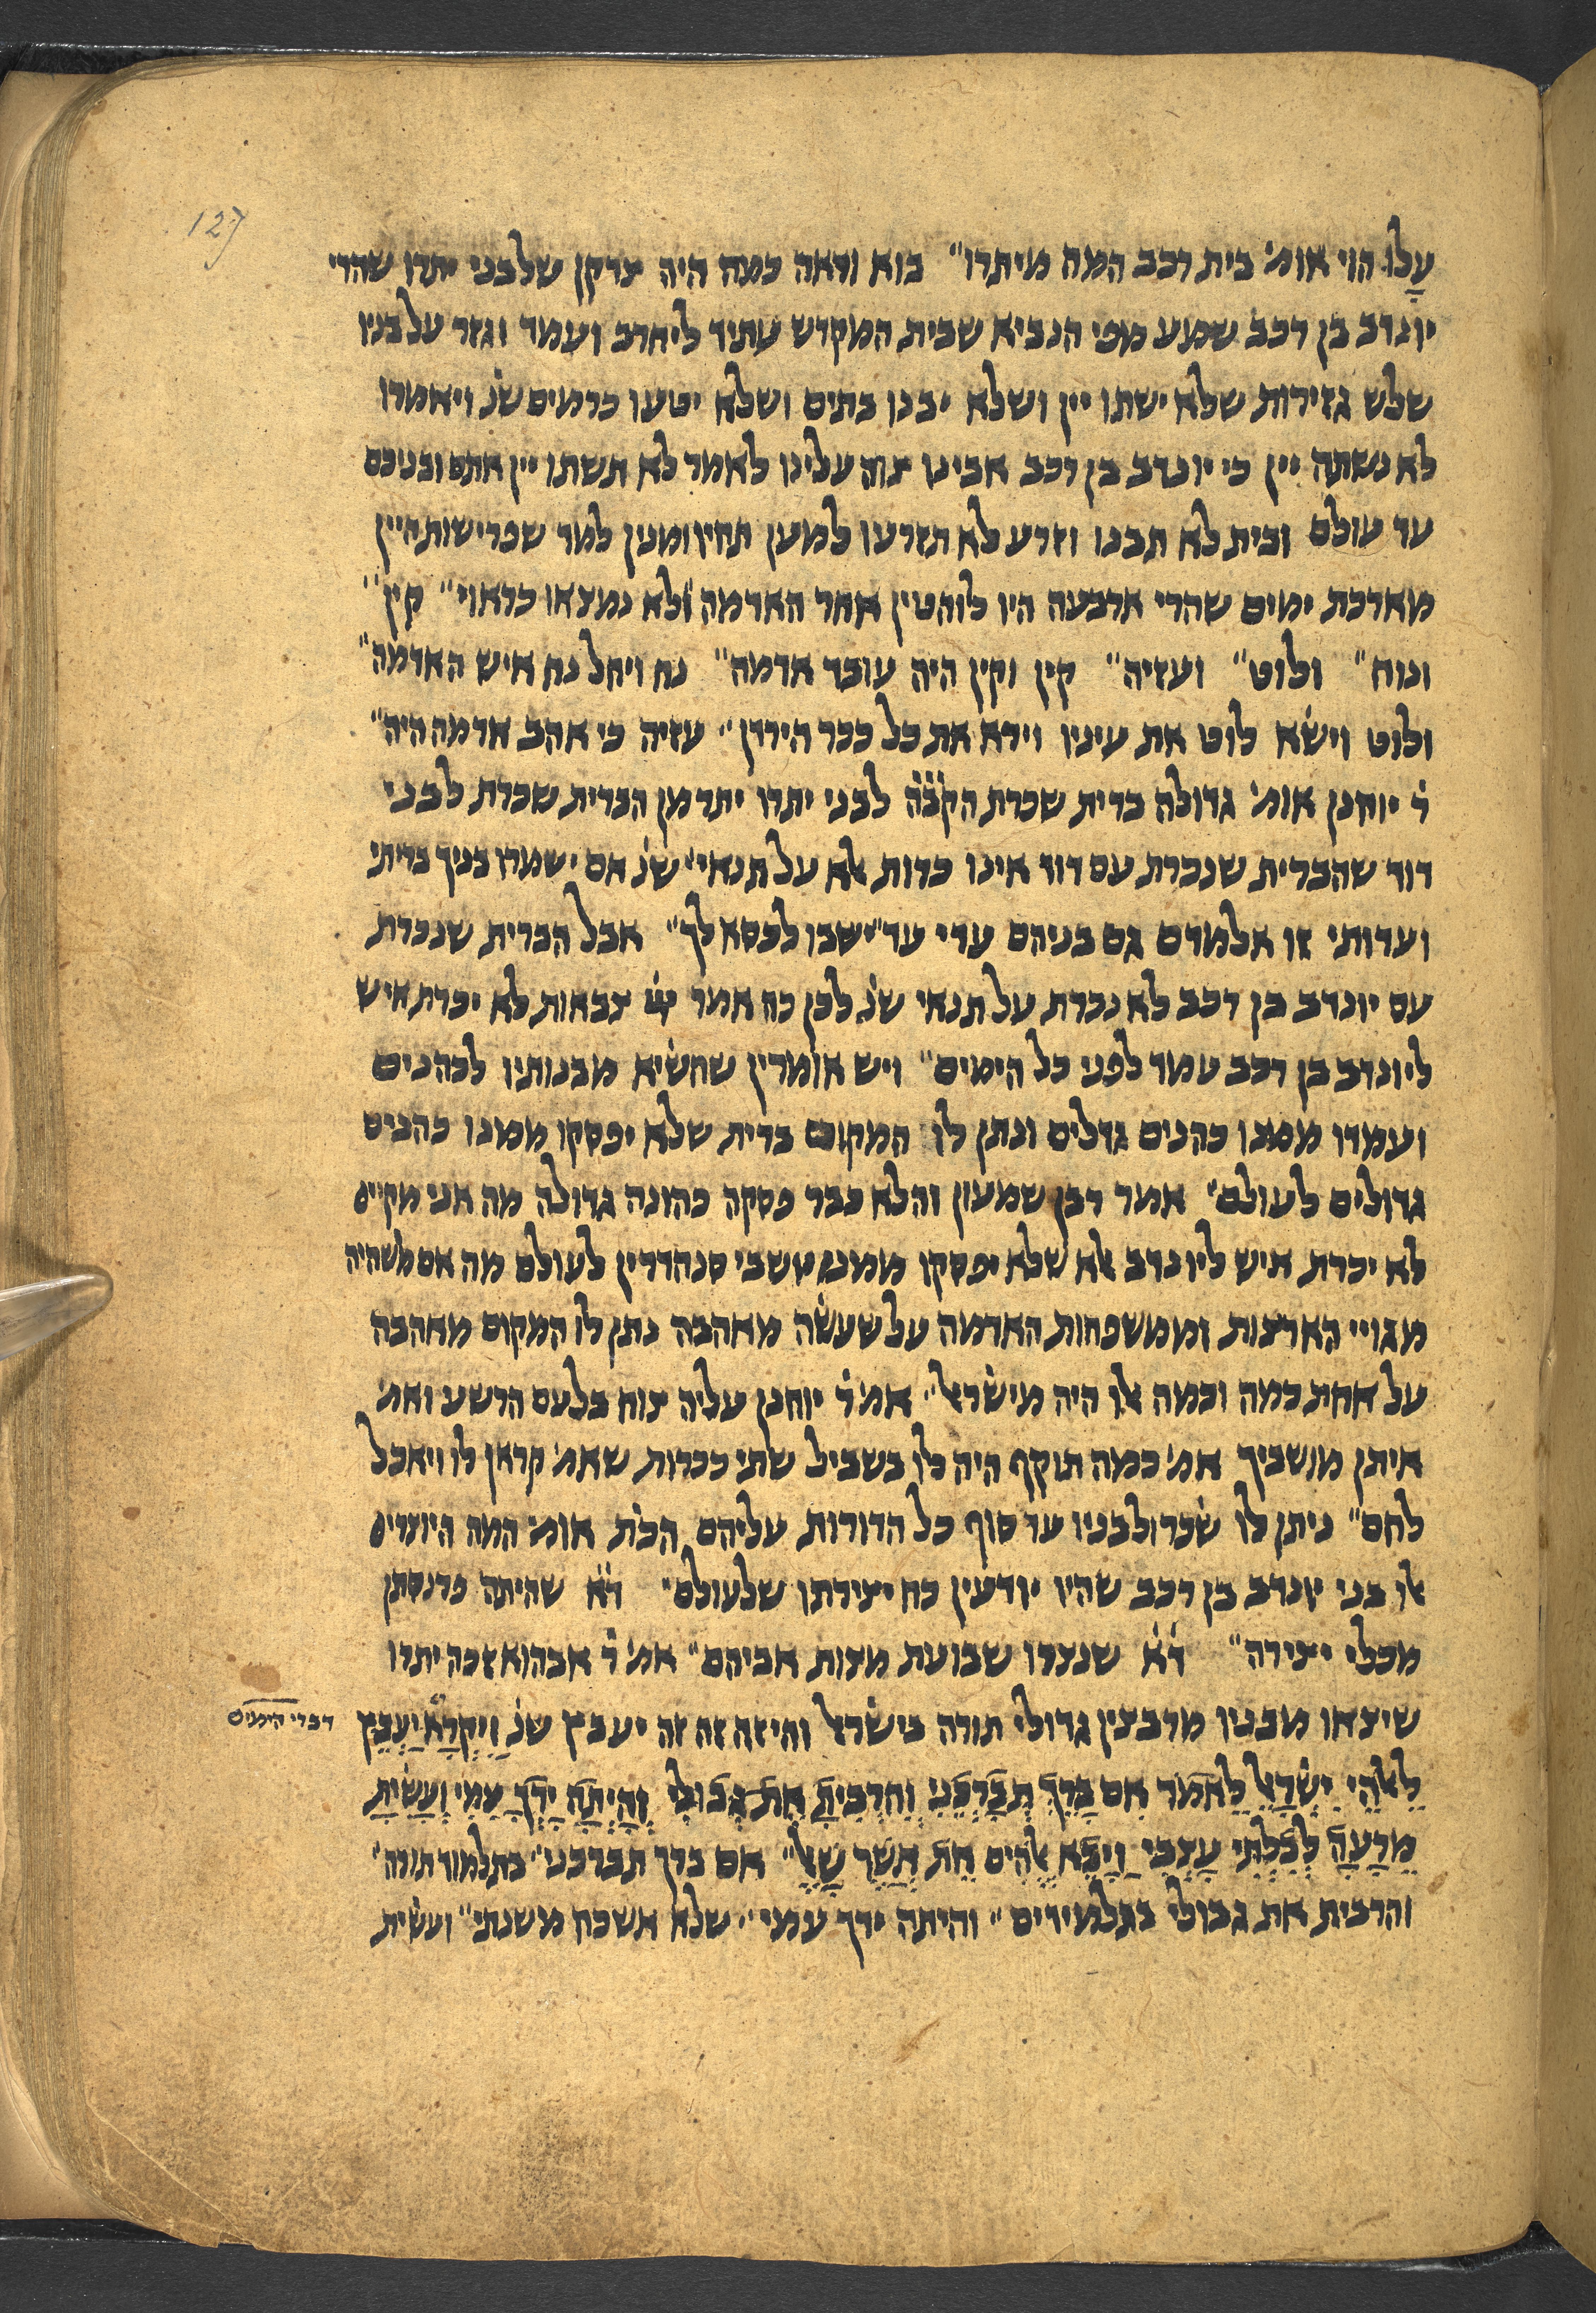 127
עָלַו הוי אומ׳ בית רכב המה מיתרו״ בוא וראה כמה היה צדקן שלבני יתרו שהרי
יונדב בן רכב שמע מפי הנביא שבית המקדש עתיד ליחרב ועמד וגזר על בניו
שלש גזירות שלא ישתו יין ושלא יבנו בתים ושלא יטעו כרמים שנ׳ ויאמרו
לא נשתה יין כי יונדב בן רכב אבינו צוה עלינו לאמר לא תשתו יין אתם ובניכם
עד עולם ובית לא תבנו וזרע לא תזרעו למען תחיו ומנין למד שפרישות היין
מארכת ימים שהרי ארבעה היו להוטין אחר האדמה ולא נמצאו כראוי״ קין״
ונוח״ ולוט״ ועזיה״ קין וקין היה עובד אדמה״ נח ויחל נח איש האדמה״
ולוט וישא לוט את עיניו וירא את כל ככר הירדן״ עזיה כי אהב אדמה היה״
ר׳ יוחנן אומ׳ גדולה ברית שכרת הקבה לבני יתרו יתר מן הברית שכרת לבני
דוד שהברית שנכרת עם דוד אינו כרות אלא על תנאי״ שנ׳ אם ישמרו בניך בריתי
ועדותי זו אלמדם גם בניהם עדי עד״ ישבו לכסא לך״ אבל הברית שנכרת
עם יונדב בן רכב לא נכרת על תנאי שנ׳ לכן כה אמר צבאות לא יכרת איש
ליונדב בן רכב עמד לפני כל הימים״ ויש אומרין שהשיא מבנותיו לכהנים
ועמדו ממנו כהנים גדלים ונתן לו המקום ברית שלא יפסקו ממנו כהנים
גדולים לעולם״ אמר רבן שמעון והלא כבר פסקה כהונה גדולה מה אני מקיים
לא יכרת איש ליונדב אלא שלא יפסקו ממנו יושבי סנהדרין לעולם מה אם מי שהיה
מגויי הארצות וממשפחות האדמה על שעשה מאהבה נתן לו המקום מאהבה
על אחת כמה וכמה אלו היה מישראל״ אמ׳ ר׳ יוחנן עליה צוח בלעם הרשע ואמ׳
איתן מושביך אמ׳ כמה תוקף היה לו בשביל שתי ככרות שאמ׳ קראן לו ויאכל
לחם״ ניתן לו שכר ולבניו עד סוף כל הדורות עליהם הכת׳ אומ׳ המה היוצרים
אלו בני יונדב בן רכב שהיו יודעין כח יצירתו שלעולם״ ד״א שהיתה פרנסתן
מכלי יצירה״ ד״א שנצרו שבועת מצות אביהם״ אמ׳ ר׳ אבהוא זכה יתרו
שיצאו מבניו מרבצין גדולי תורה בישראל והיזה זה יעבץ שנ׳ וַיִּקְרָא יַעְבֵּץ
דברי הימים
לֵאלֹהֵי יִשְׂרָאֵל לֵאמֹר אִם בָּרֵךְ תְּבָרְכֵנִי וְהִרְבִּיתָ אֶת גְּבוּלִי וְהָיְתָה יָדְךָ עִמִּי וְעָשִׂיתָ
מֵּרָעָה לְבִלְתִּי עָצְבִּי וַיָּבֵא אֱלֹהִים אֵת אֲשֶׁר שָׁאָל״ אם ברך תברכני״ בתלמוד תורה״
והרבית את גבולי בתלמידים״ והיתה ידך עמי״ שלא אשכח משנתי״ ועשית